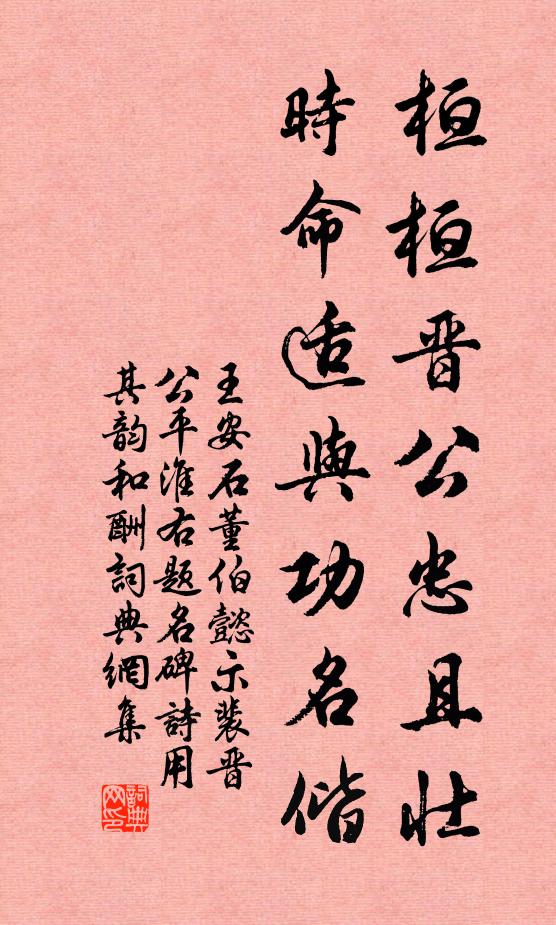 桓桓晋公忠且壮
時命适與功名偕
王安石董伯懿示裴晋
公平淮右題名碑詩用
其韵和酬詞典網集
詞典
网印